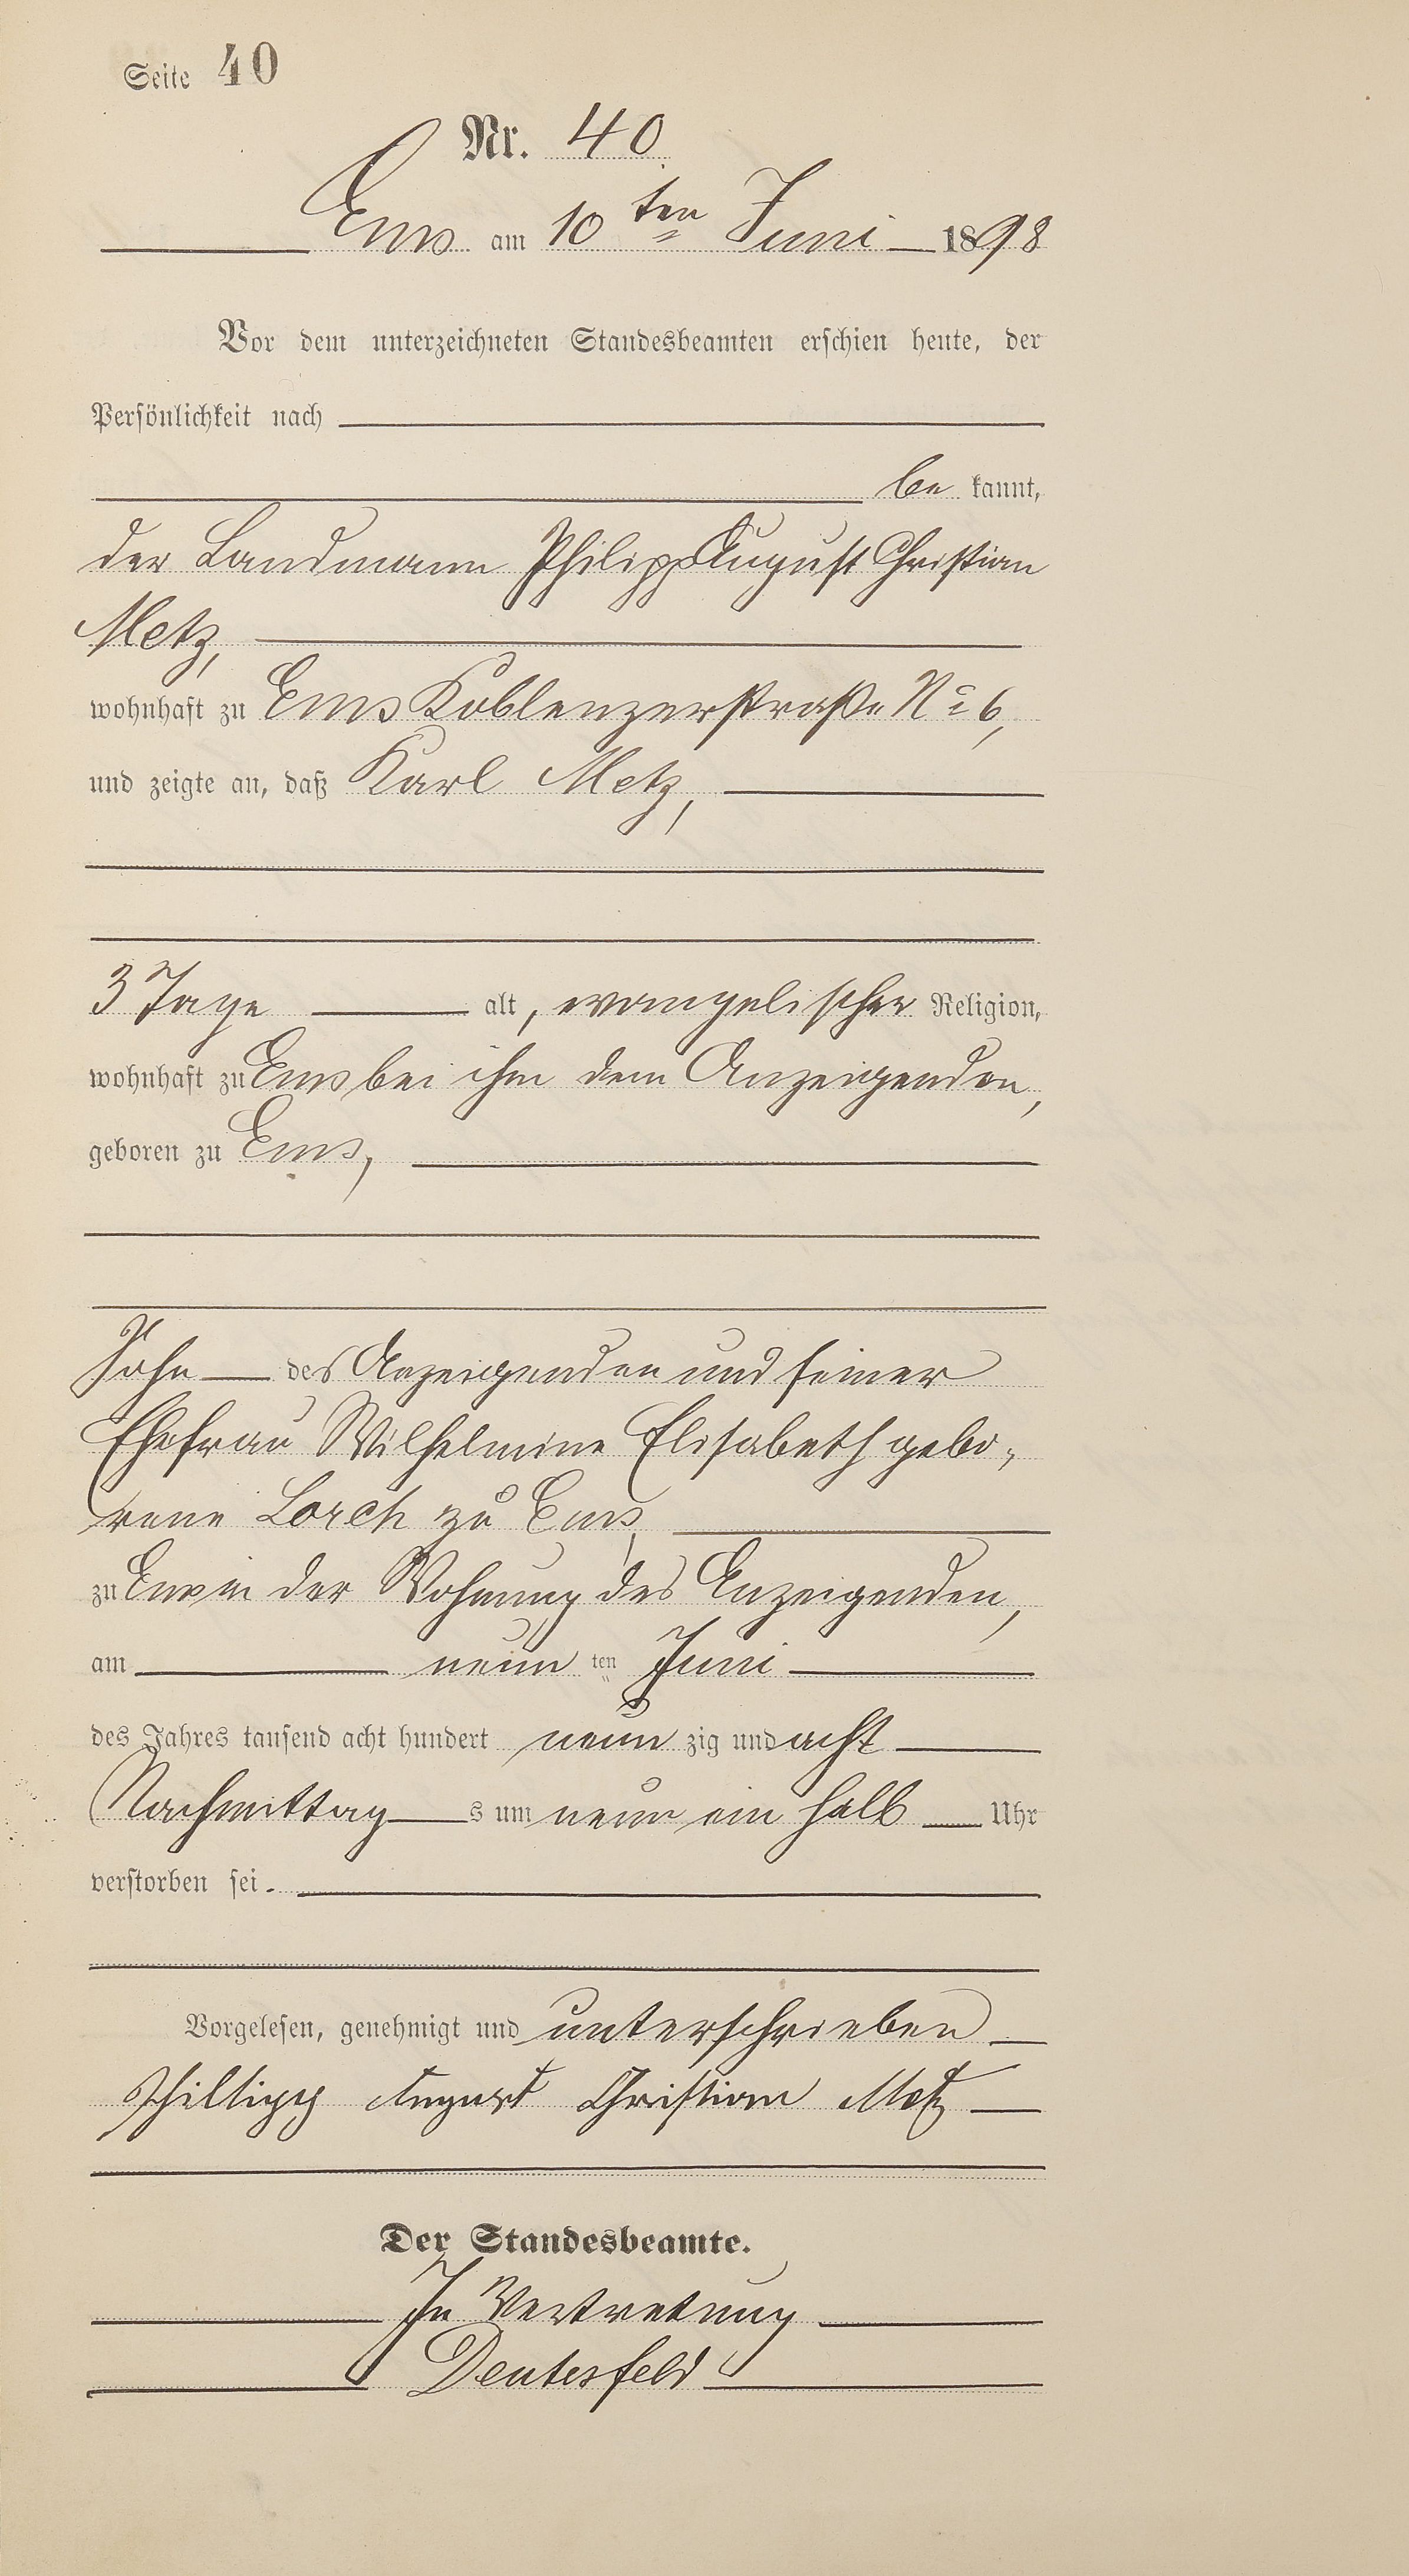 Seite 40
Nr. 40
Ems am 10ten Juni 1898
Vor dem unterzeichneten Standesbeamten erschien heute, der
Persönlichkeit nach
be kannt,
der Landmann Philipp August Christian
Metz,
wohnhaft zu Ems Koblenzerstraße No 6,
und zeigte an, daß Karl Metz,
3 Tage alt, evangelischer Religion,
wohnhaft zu Ems bei ihm dem Anzeigenden,
geboren zu Ems,
Sohn des Anzeigenden und seiner
Ehefrau Wilhelmine Elisabeth gebo-
rene Lorch zu Ems,
zu Ems in der Wohnung des Anzeigenden,
am neun ten Juni
des Jahres tausend acht hundert neun zig und acht
Nachmittag s um neun ein halb Uhr
verstorben sei.
Vorgelesen, genehmigt und unterschrieben
Philligg August Christian Metz
Der Standesbeamte.
In Vertretung
Deutesfeld